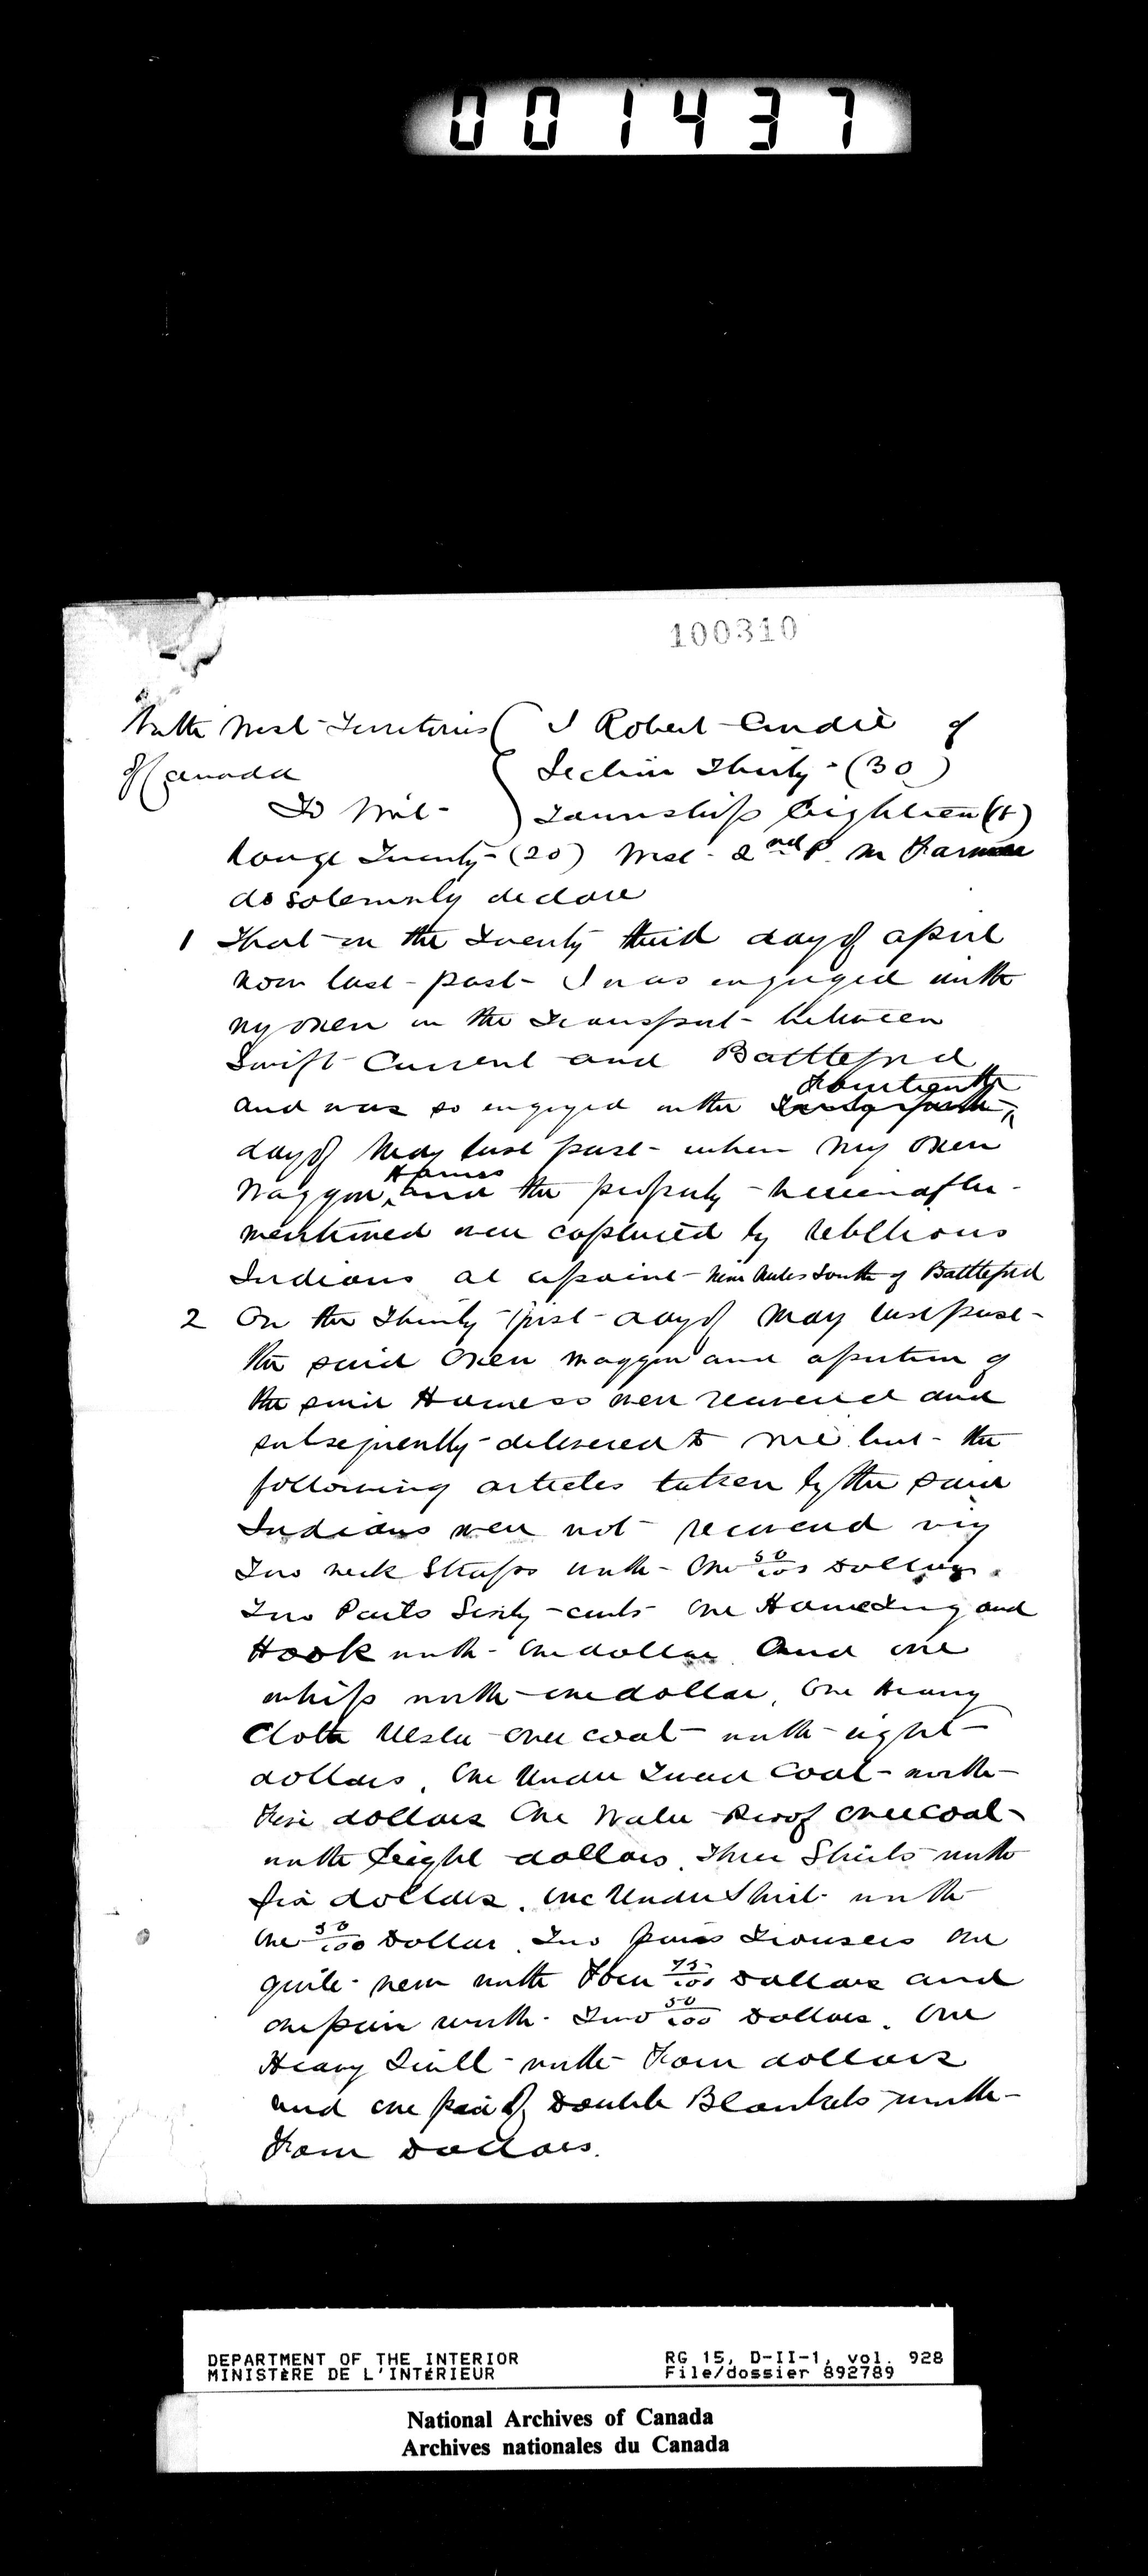 001437
100310
North West Territories ( I Robert Cindie of
of Canada ( Section Thirty (30)
To Wit ) Township Eighteen (18)
Range Twenty (20) West 2nd P. M Farmer
do solemnly declare
1 That on the Twenty third day of April
now last past I was engaged with
my oxen in the Transport between
Swift Current and Battleford
and was so engaged on the Fourteenth
day of May last past when my oxen
Waggon, Harness and the property hereinafter
mentioned were captured by rebellious
Indians at a point Nine Miles South of Battleford
2 On the Thirty first day of May last past
the said Oxen waggon and a portion of
the said Harness were recovered and
subsequently delivered to me but the
following articles taken by the said
Indians were not recovered viz
Two neck Straps worth One 50/100 Dollars.
Two Pails Sixty cents One Hame Tug and
Hook worth One dollar and one
whip worth one dollar, One Heavy
Cloth Ulster over coat worth eight
dollars, One Under Tweed Coat worth
Five dollars One Water Proof overcoat
worth Eight dollars, Three Shirts worth
Six dollars. One Under Shirt worth
One 50/100 Dollar. Two pairs Trousers one
quite new worth Four 75/100 Dollars and
one pair worth Two 50/100 Dollars. One
Heavy Quilt worth Four dollars
and one pair of Double Blankets worth
Four Dollars.
DEPARTMENT OF THE INTERIOR RG 15, D-II-1, vol. 928
MINISTÈRE DE L'INTÉRIEUR File/dossier 892789
National Archives of Canada
Archives nationales du Canada